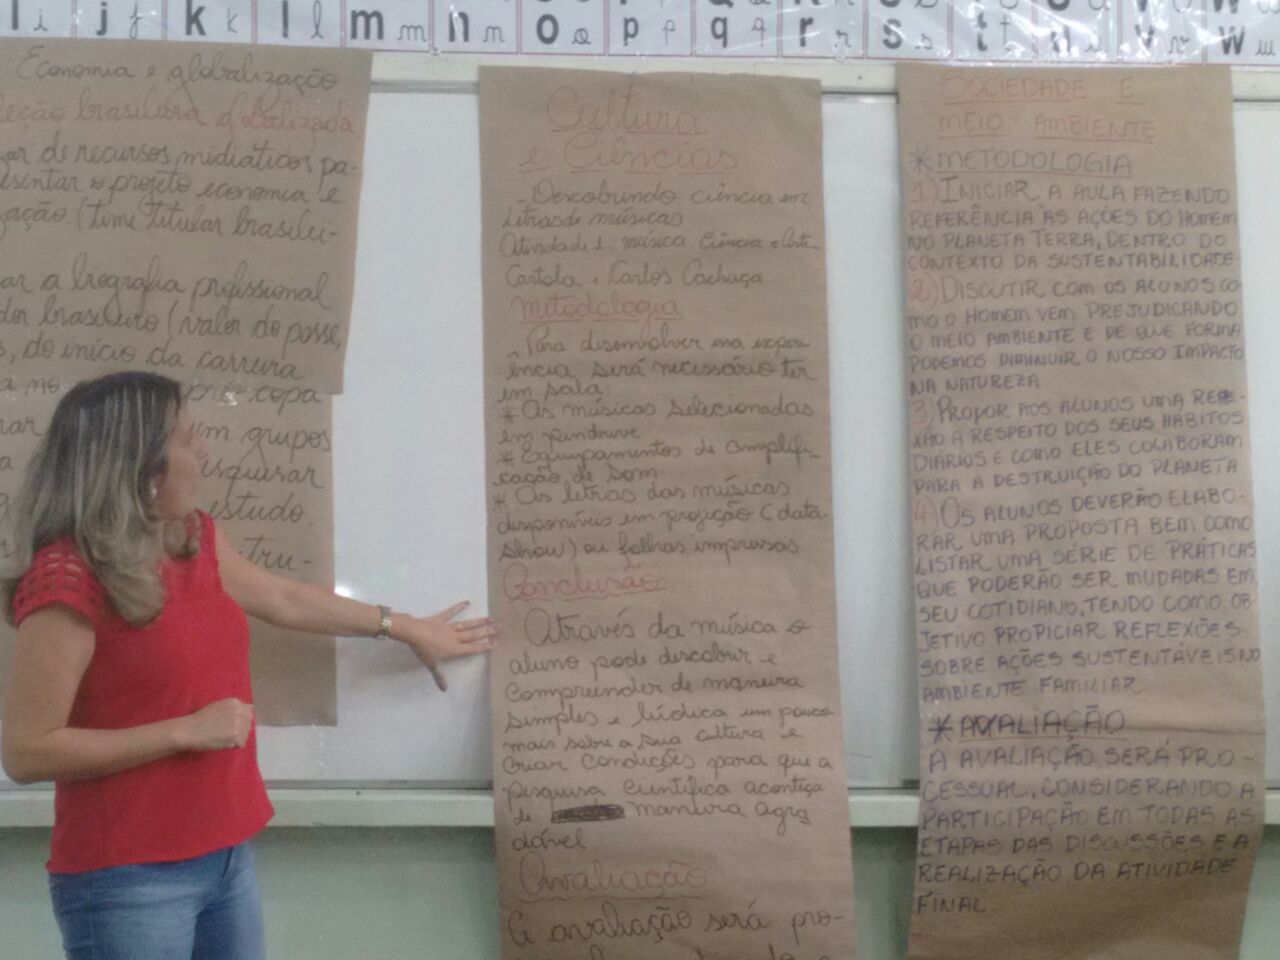 i j k l m n o p q r s t u v w
Economia e globalização
leção brasileira globalizada
de recursos midiáticos pa-
sentar o projeto economia e
zação (time titular brasilei-
ar a biografia profissional
dor brasileiro (valor do passe,
s, do início da carreira
a no pré-copa
um grupos
esquisar
estudo.
tru-
Cultura
e Ciências
- Descobrindo ciência em
letras de músicas
Atividade 1 música Ciência e Arte-
Cartola e Carlos Cachaça
Metodologia
- Para desenvolver essa experi-
ência será necessário ter
em sala
* As músicas selecionadas
em pendrive
* Equipamentos de amplifi-
cação de som.
* As letras das músicas
disponíveis em projeção (data-
show) ou folhas impressas
Conclusão
Através da música o
aluno pode descobrir e
compreender de maneira
simples e lúdica um pouco
mais sobre a sua cultura e
criar condições para que a
pesquisa científica aconteça
de maneira agra
dável
Avaliação
A avaliação será pro-
SOCIEDADE E
MEIO AMBIENTE
* METODOLOGIA
1) INICIAR A AULA FAZENDO
REFERÊNCIA ÀS AÇÕES DO HOMEM
NO PLANETA TERRA, DENTRO DO
CONTEXTO DA SUSTENTABILIDADE
2) DISCUTIR COM OS ALUNOS CO-
MO O HOMEM VEM PREJUDICANDO
O MEIO AMBIENTE E DE QUE FORMA
PODEMOS DIMINUIR O NOSSO IMPACTO
NA NATUREZA
3) PROPOR AOS ALUNOS UMA REFLE-
XÃO A RESPEITO DOS SEUS HÁBITOS
DIÁRIOS E COMO ELES COLABORAM
PARA A DESTRUIÇÃO DO PLANETA
4) OS ALUNOS DEVERÃO ELABO-
RAR UMA PROPOSTA BEM COMO
LISTAR UMA SÉRIE DE PRÁTICAS
QUE PODERÃO SER MUDADAS EM
SEU COTIDIANO, TENDO COMO OB-
JETIVO PROPICIAR REFLEXÕES
SOBRE AÇÕES SUSTENTÁVEIS NO
AMBIENTE FAMILIAR
* AVALIAÇÃO
A AVALIAÇÃO SERÁ PRO-
CESSUAL, CONSIDERANDO A
PARTICIPAÇÃO EM TODAS AS
ETAPAS DAS DISCUSSÕES E A
REALIZAÇÃO DA ATIVIDADE
FINAL.